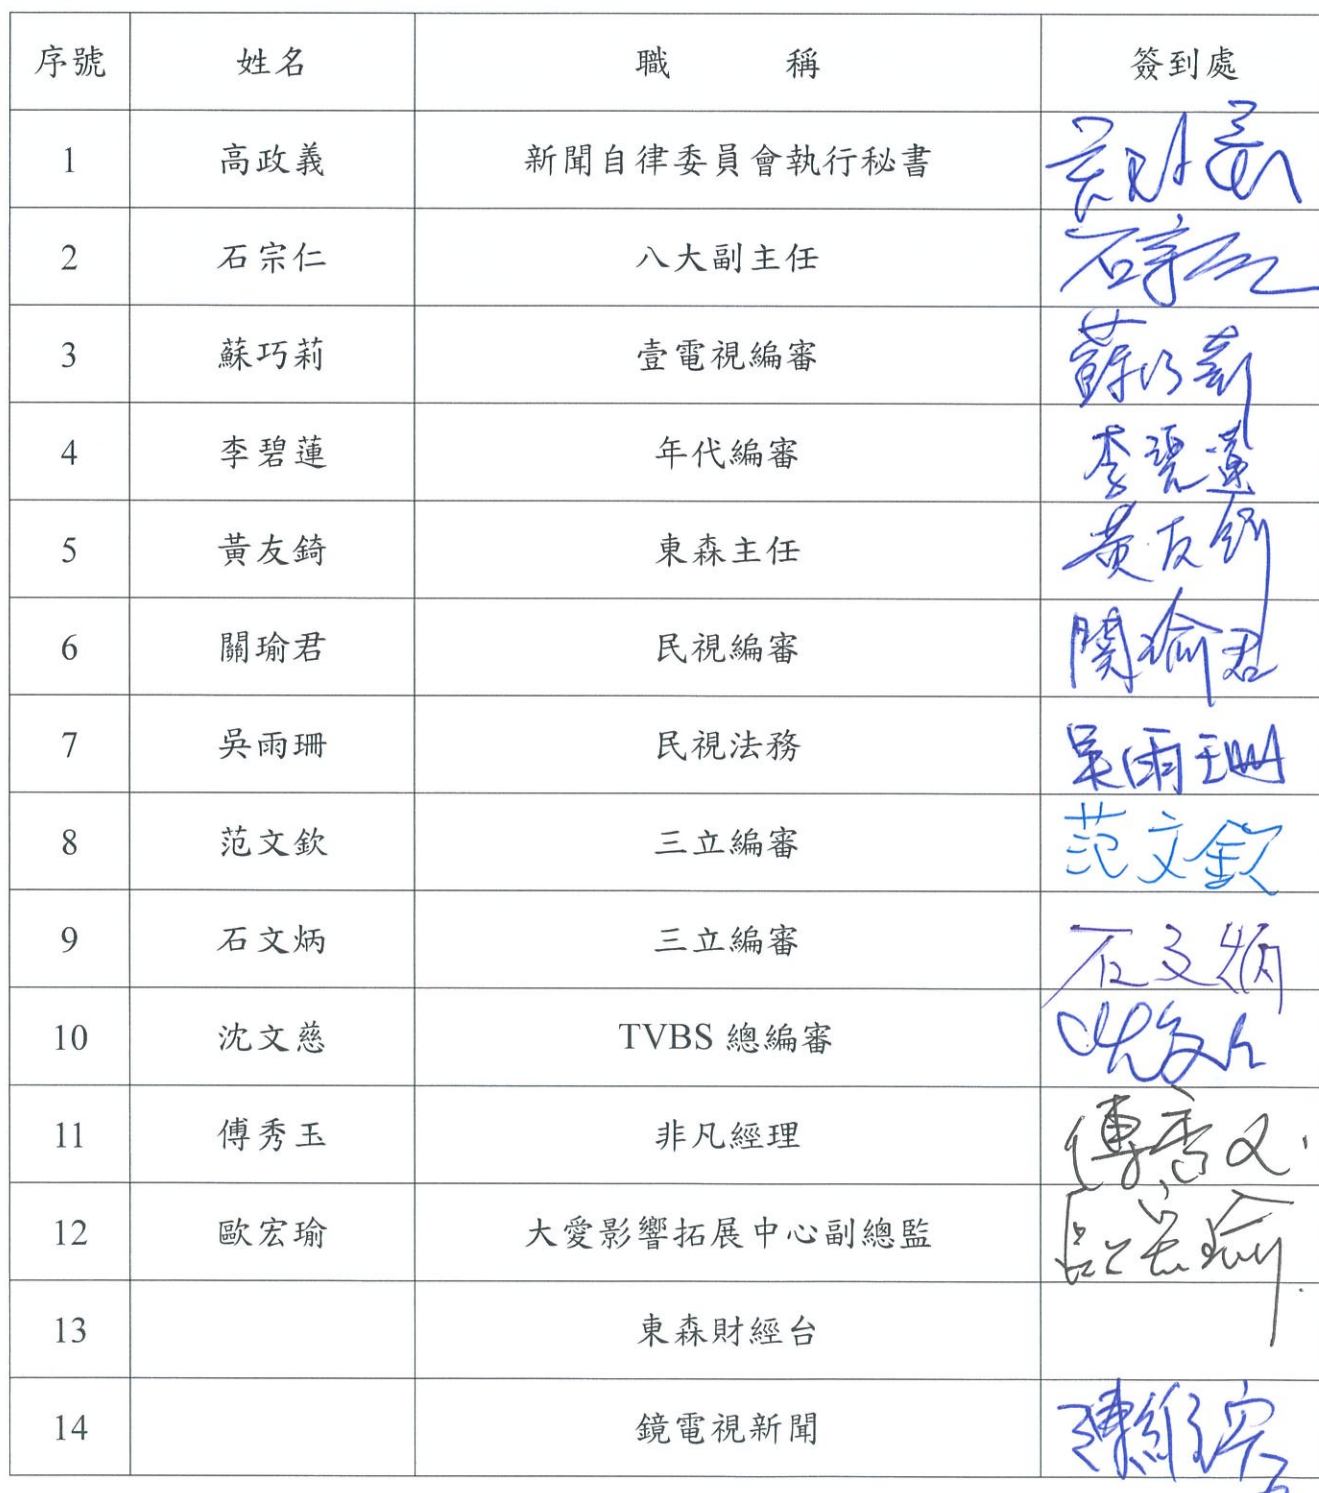 序號 姓名 職 稱 簽到處
1 高政義 新聞自律委員會執行秘書 高政義
2 石宗仁 八大副主任 石宗仁
3 蘇巧莉 壹電視編審 蘇巧莉
4 李碧蓮 年代編審 李碧蓮
5 黃友錡 東森主任 黃友錡
6 關瑜君 民視編審 關瑜君
7 吳雨珊 民視法務 吳雨珊
8 范文欽 三立編審 范文欽
9 石文炳 三立編審 石文炳
10 沈文慈 TVBS 總編審 沈文慈
11 傅秀玉 非凡經理 傅秀玉
12 歐宏瑜 大愛影響拓展中心副總監 歐宏瑜
13 東森財經台
14 鏡電視新聞